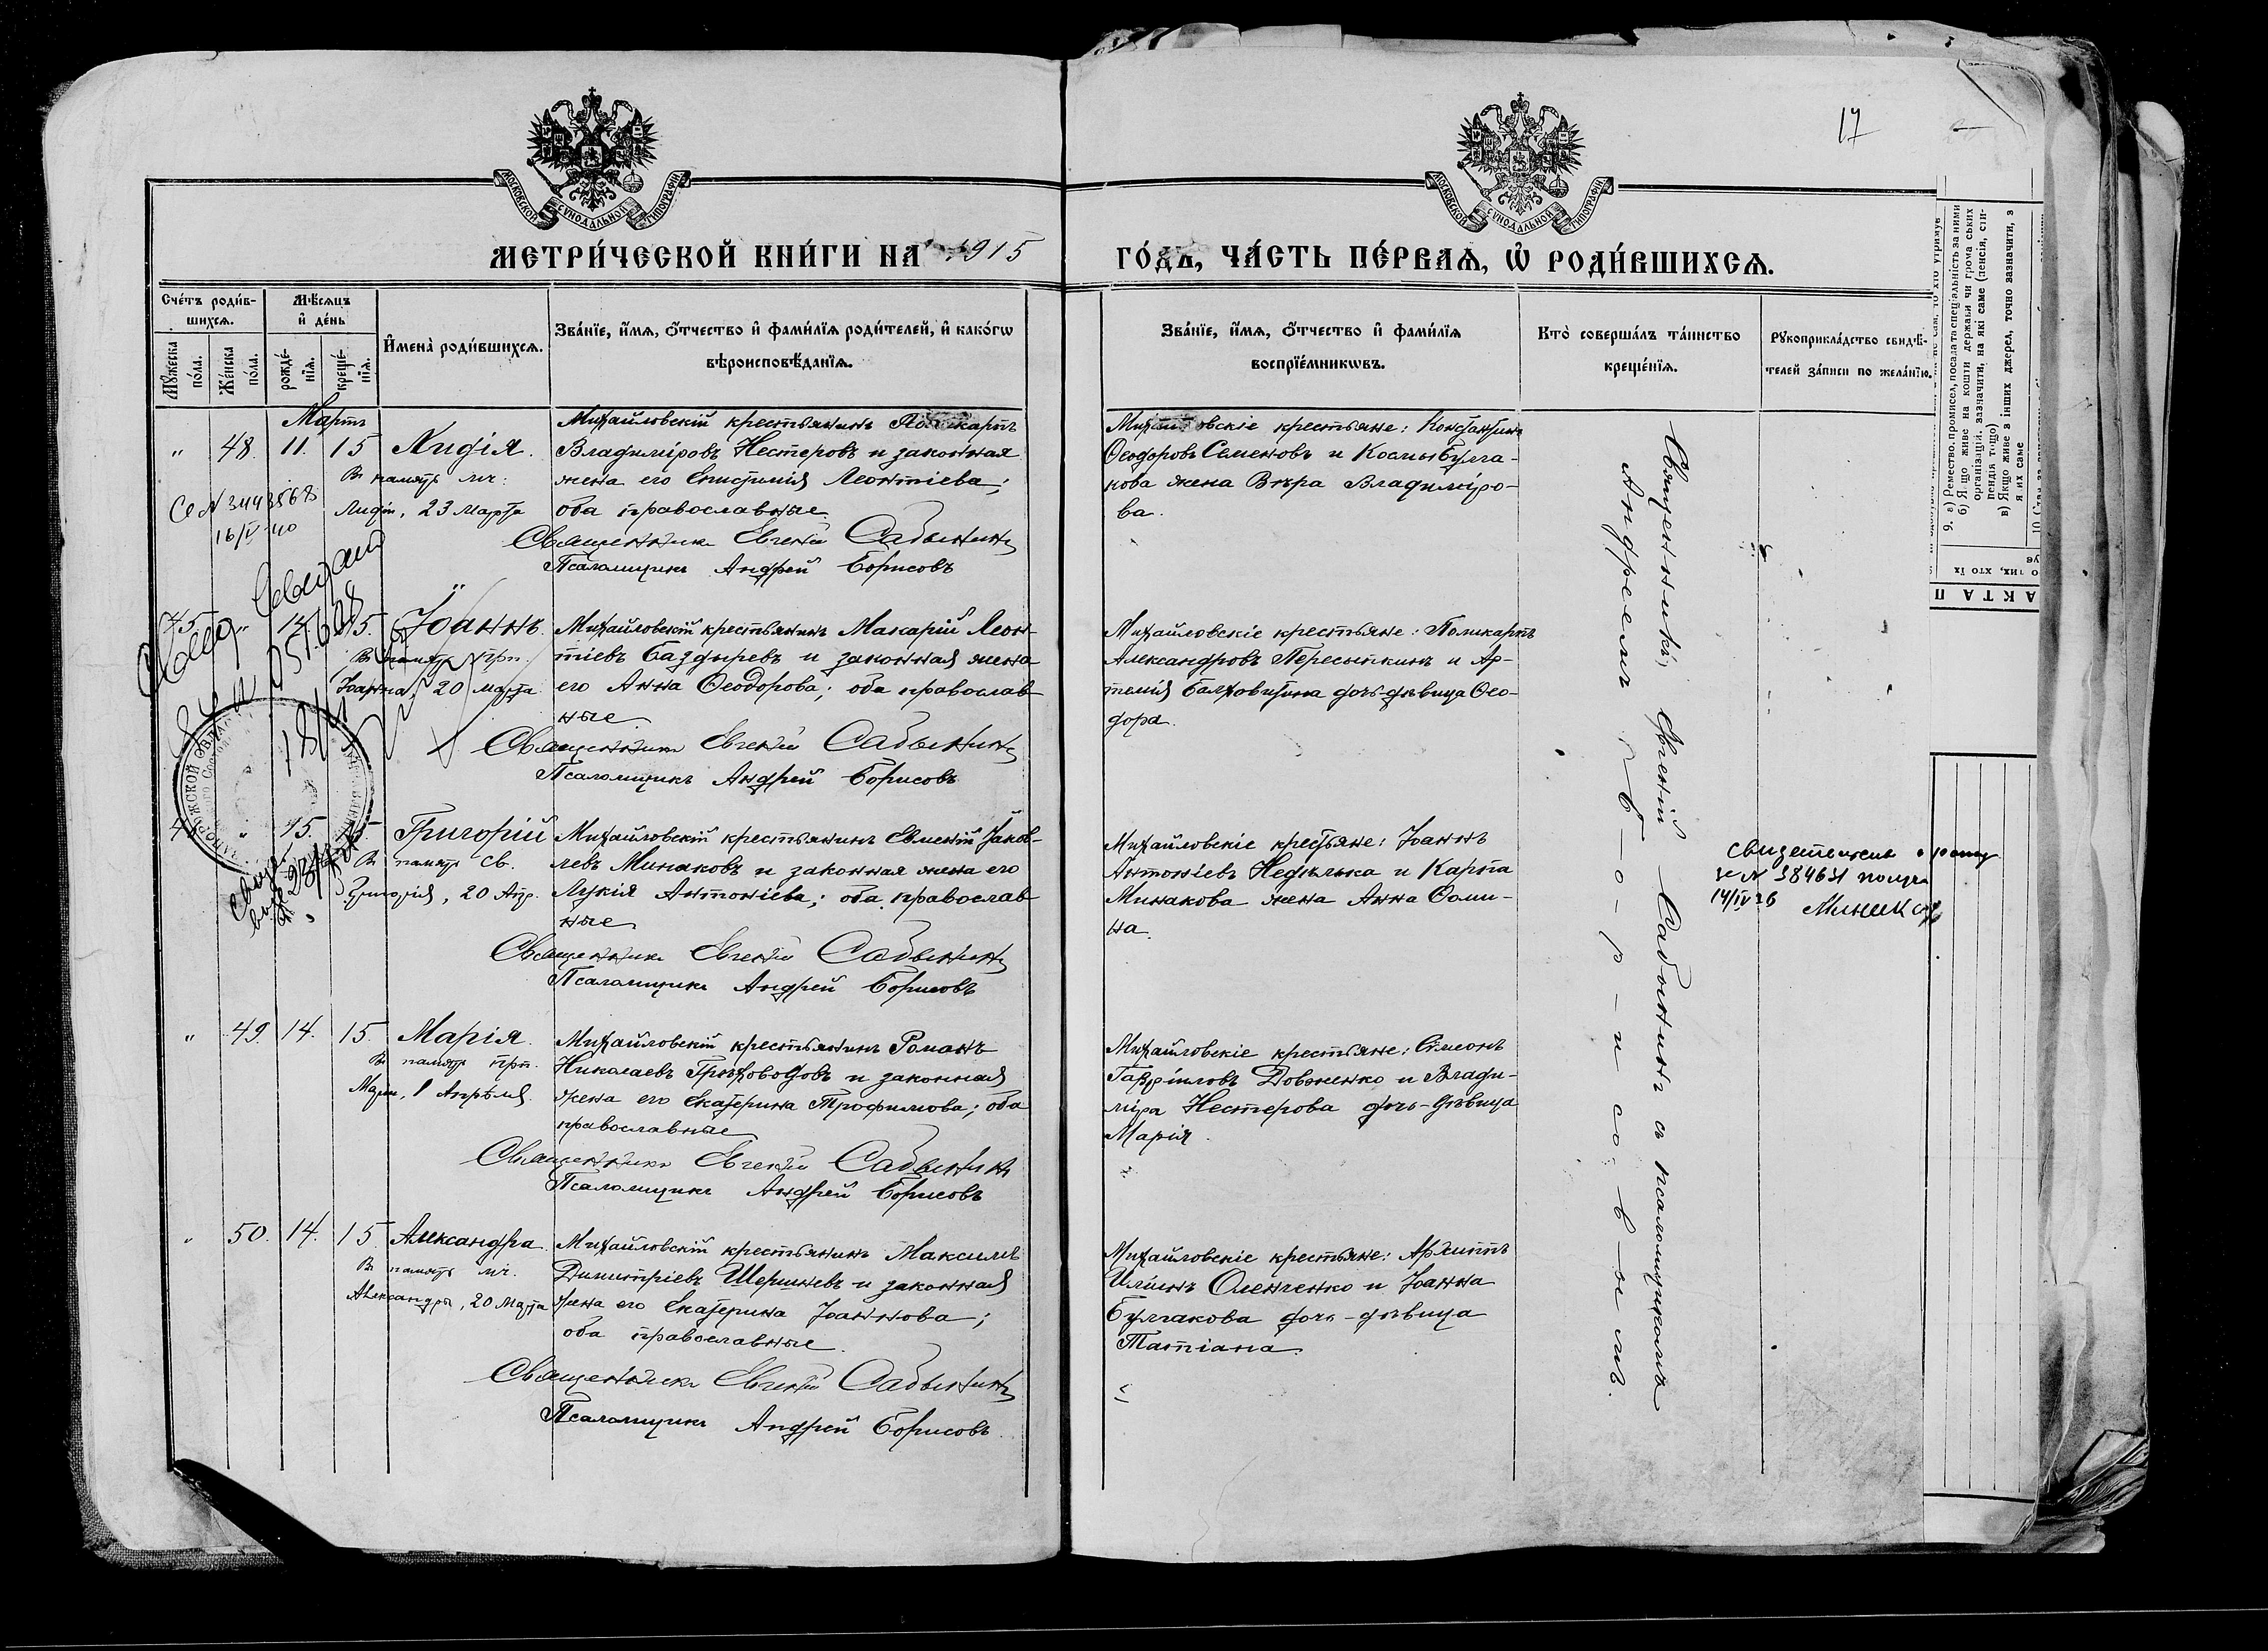 17
МОСКОВСКОЙ СѴНОДАЛЬНОЙ ТИПОГРАФІИ
МОСКОВСКОЙ СѴНОДАЛЬНОЙ ТИПОГРАФІИ
МЕТРИ́ЧЕСКОЙ КНИ́ГИ НА 1915
ГО́ДЪ, ЧА́СТЬ ПЕ́РВАѦ, Ѡ҆ РОДИ́ВШИХСѦ.
Сче́тъ роди́в-
шихсѧ.
Мꙋ́жеска по́ла.
Же́нска по́ла.
Мѣ́сѧцъ
и҆ де́нь
рожде́-
нїѧ.
креще́-
нїѧ.
И҆мена̀ роди́вшихсѧ.
Зва́нїе, и҆́мѧ, ѻ҆́тчество и҆ фами́лїѧ роди́телей, и҆ како́гѡ
вѣроисповѣ́данїѧ.
Зва́нїе, и҆́мѧ, ѻ҆́тчество и҆ фами́лїѧ
воспрїе́мникѡвъ.
Кто̀ соверша́лъ та́инство
креще́нїѧ.
Рꙋкоприкла́дство свидѣ́-
телей за́писи по жела́нїю.
Мартъ
" 48. 11. 15 Лидія.
Въ память мч:
Лидіи, 23 Марта
Михайловскій крестьянинъ Поликарпъ
Владиміровъ Нестеровъ и законная
жена его Епистимія Леонтіева;
оба православные
Священникъ Евгеній Сабынинъ
Псаломщикъ Андрей Борисовъ
Михайловскіе крестьяне: Константинъ
Ѳеодоровъ Семеновъ и Космы Булга-
кова жена Вѣра Владиміро-
ва.
16/IV 40
45 " 14. 15. Іоаннъ.
Въ память прп.
Іоанна, 20 Марта
Михайловскій крестьянинъ Макарій Леон-
тіевъ Баздыревъ и законная жена
его Анна Ѳеодорова; оба православ-
ные
Священникъ Евгеній Сабынинъ
Псаломщикъ Андрей Борисовъ
Михайловскіе крестьяне: Поликарпъ
Александровъ Пересыпкинъ и Ар-
темія Балховитина дочь-дѣвица Ѳео-
дора.
" 15. 15. Григорій
Въ память св.
Григорія, 20 Апр.
Михайловскій крестьянинъ Евменій Іаков-
левъ Минаковъ и законная жена его
Лукія Антоніева; оба православ-
ные
Священникъ Евгеній Сабынинъ
Псаломщикъ Андрей Борисовъ
Михайловскіе крестьяне: Іоаннъ
Антоніевъ Недѣлька и Карпа
Минакова жена Анна Ѳоми-
на.
за № 384631
14/IV 26
" 49. 14. 15. Марія.
Въ память прп.
Маріи, 1 Апрѣля.
Михайловскій крестьянинъ Романъ
Николаевъ Грѣховодовъ и законная
жена его Екатерина Трофимова; оба
православные
Священникъ Евгеній Сабынинъ
Псаломщикъ Андрей Борисовъ
Михайловскіе крестьяне: Симеонъ
Гавріиловъ Довженко и Влади-
міра Нестерова дочь-дѣвица
Марія.
" 50. 14. 15 Александра
Въ память мч.
Александры, 20 Марта
Михайловскій крестьянинъ Максимъ
Димитріевъ Шершневъ и законная
жена его Екатерина Іоаннова;
оба православные.
Священникъ Евгеній Сабынинъ
Псаломщикъ Андрей Борисовъ.
Михайловскіе крестьяне: Архиппъ
Иліинъ Оленченко и Іоанна
Булгакова дочь-дѣвица
Татіана.
Священникъ Евгеній Сабынинъ съ псаломщикомъ
Андреемъ Б-о-р-и-со-в-ы-мъ.
9. а) Ремество, промисел, посада та спеціальність за ними
б) Якщо живе на кошти держави чи громадських
організацій, зазначити, на які саме (пенсія, сти-
пендія тощо)
в) Якщо живе з інших джерел, точно зазначити, з
яких саме
АКТА П